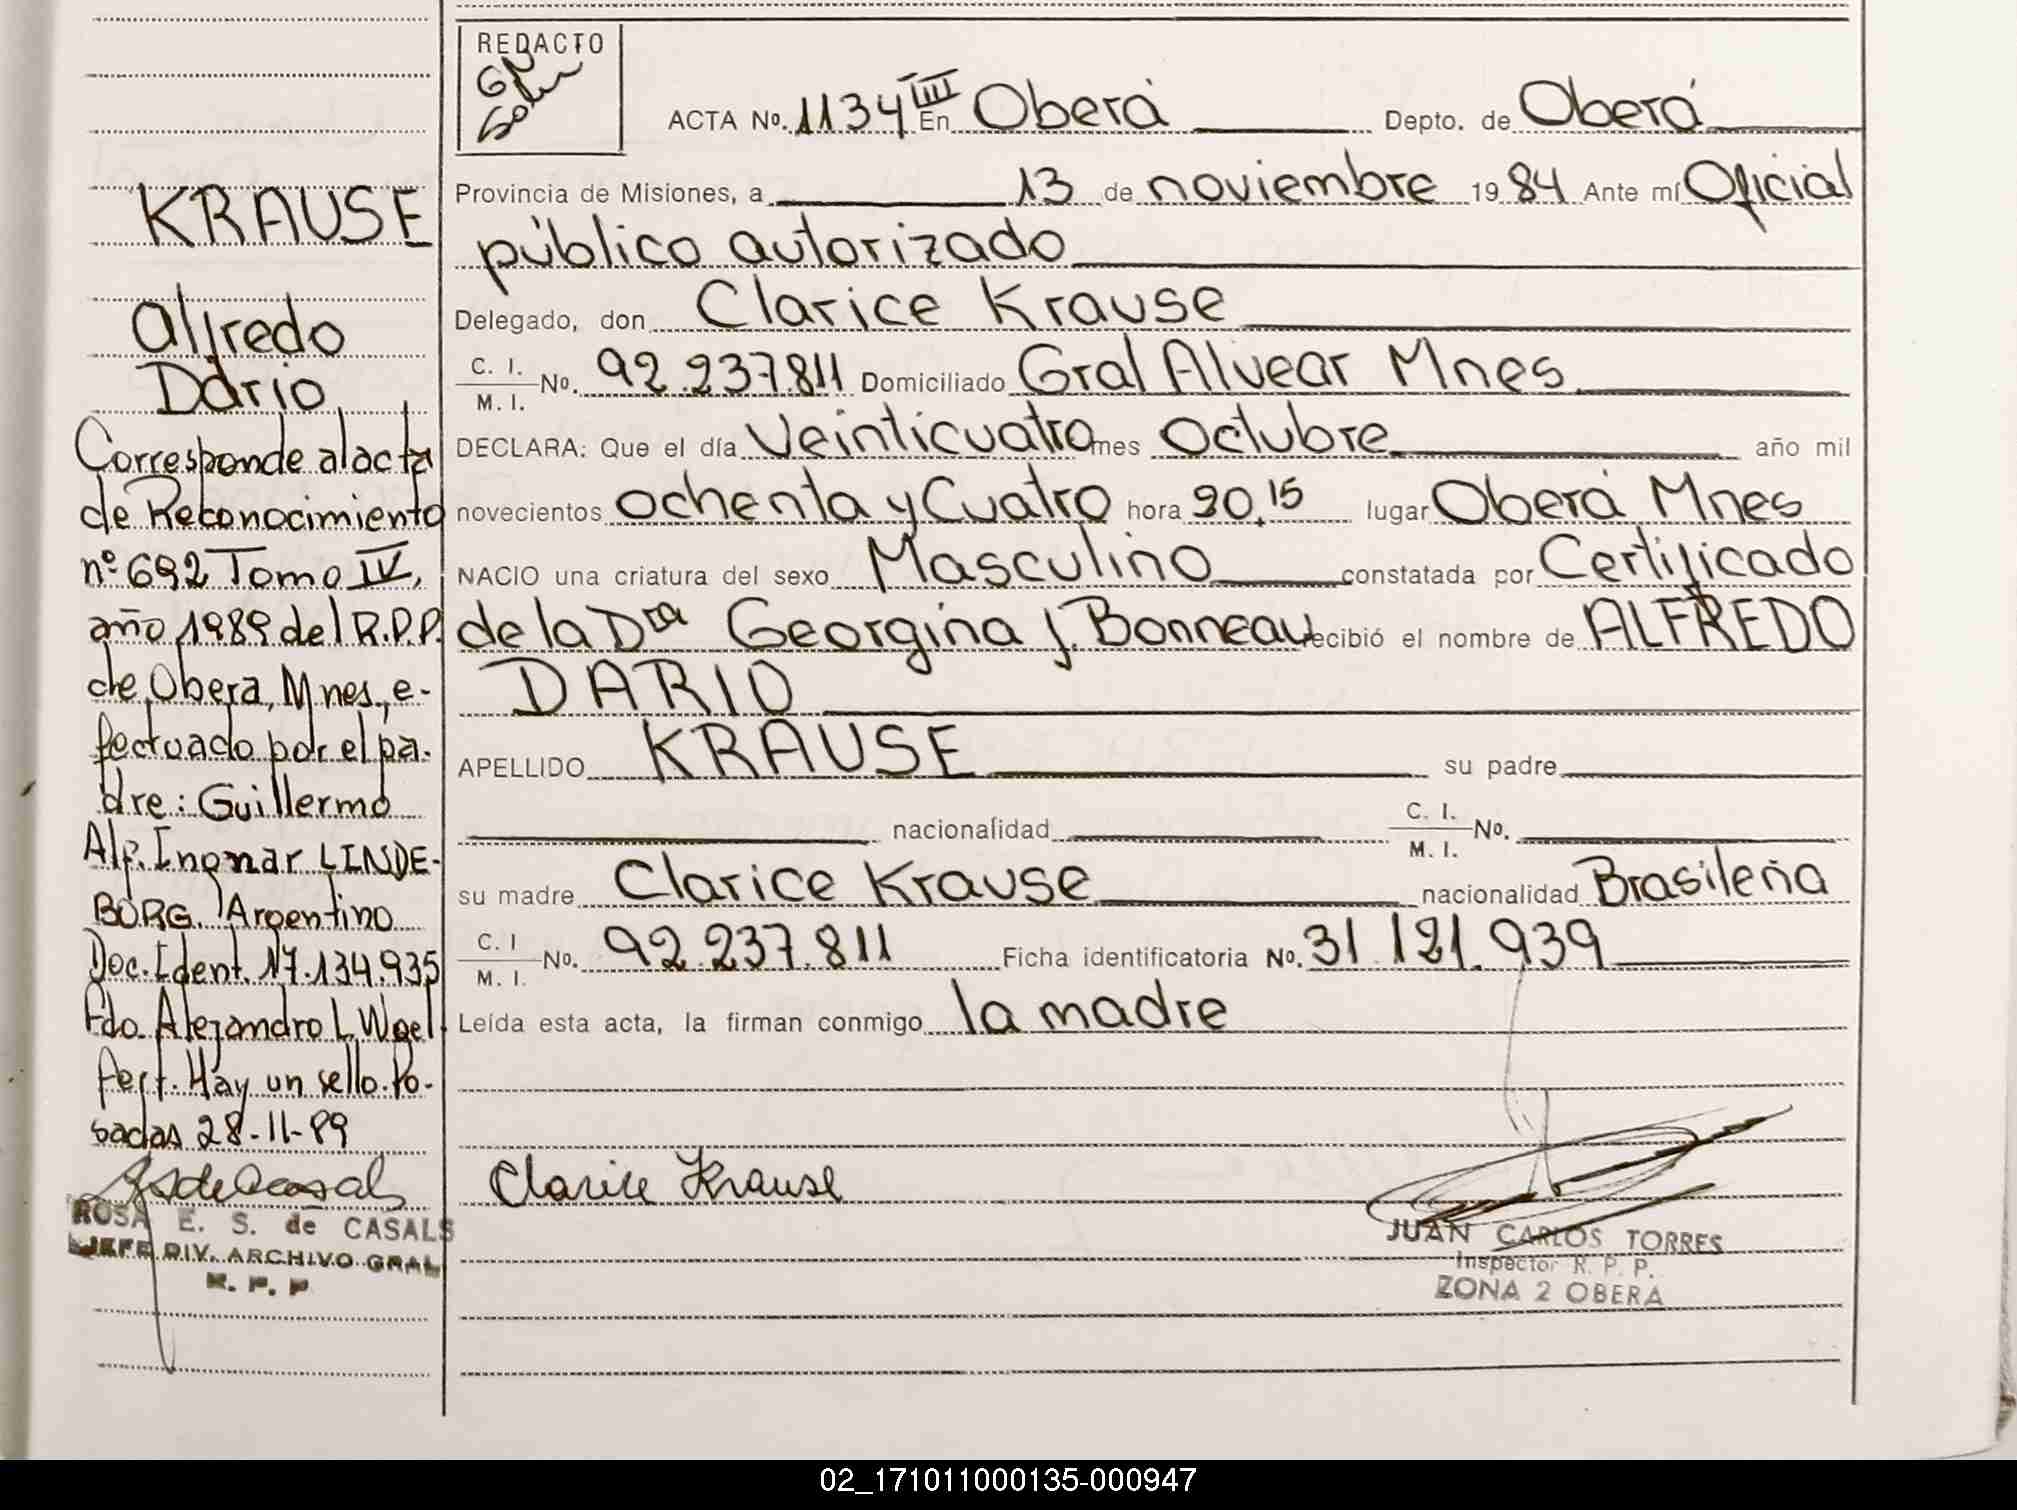 KRAUSE
Alfredo
Dario
Corresponde al acta
de Reconocimiento
nº 692 Tomo IV,
año 1989 del R.P.P.
de Obera, Mnes., e-
fectuado por el pa-
dre: Guillermo
Alf. Ingmar LINDE-
BORG. Argentino
Doc. Ident. 17.134.935
Fdo. Alejandro L.
Hay un sello. Po-
sadas 28-11-89
ROSA E. S. de CASALS
JEFE DIV. ARCHIVO GRAL
R. P. P
REDACTO
ACTA No. 1134 III En Oberá Depto. de Oberá
Provincia de Misiones, a 13 de noviembre 1984 Ante mí Oficial
público autorizado
Delegado, don Clarice Krause
C. I. M. I. No. 92.237.811 Domiciliado Gral Alvear Mnes
DECLARA: Que el día Veinticuatro mes Octubre año mil
novecientos Ochenta y Cuatro hora 20,15 lugar Oberá Mnes
NACIO una criatura del sexo Masculino constatada por Certificado
de la Dra Georgina J. Bonneau recibió el nombre de ALFREDO
DARIO
APELLIDO KRAUSE su padre
nacionalidad C. I. M. I. No.
su madre Clarice Krause nacionalidad Brasileña
C. I M. I. No. 92.237.811 Ficha identificatoria No. 31.121.939
Leída esta acta, la firman conmigo la madre
Clarice Krause
JUAN CARLOS TORRES
Inspector R. P. P.
ZONA 2 OBERA
02_171011000135-000947